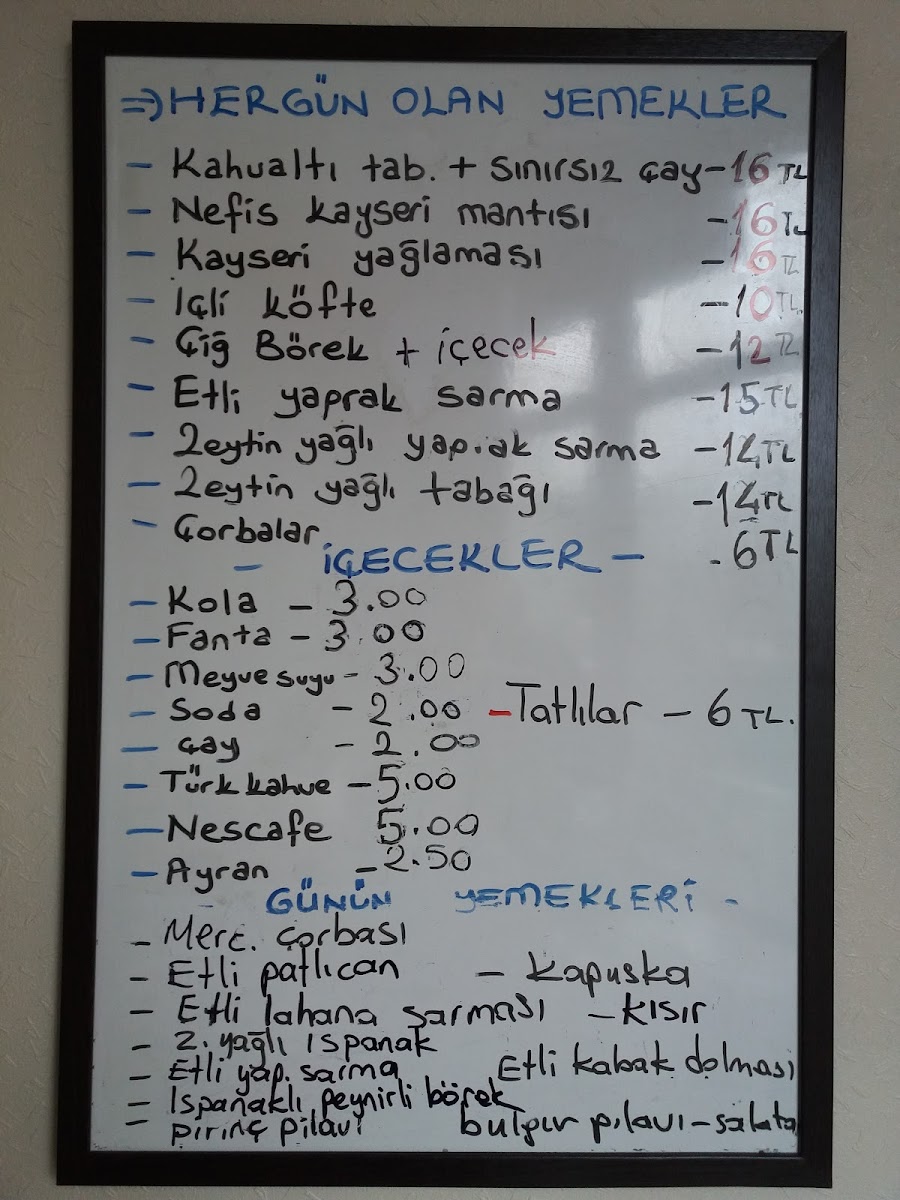 ⇒ HERGÜN OLAN YEMEKLER
- Kahvaltı tab. + sınırsız çay - 16 TL
- Nefis kayseri mantısı - 16 TL
- Kayseri yağlaması - 16 TL
- İçli köfte - 10 TL
- Çiğ Börek + içecek - 12 TL
- Etli yaprak sarma - 15 TL
- Zeytin yağlı yaprak sarma - 14 TL
- Zeytin yağlı tabağı - 14 TL
- Çorbalar - 6 TL
- İÇECEKLER -
- Kola - 3.00
- Fanta - 3.00
- Meyve suyu - 3.00
- Soda - 2.00 - Tatlılar - 6 TL.
- çay - 2.00
- Türk kahve - 5.00
- Nescafe 5.00
- Ayran - 2.50
- GÜNÜN YEMEKLERİ -
- Merc. çorbası
- Etli patlıcan - Kapuska
- Etli lahana sarması - Kısır
- Z. yağlı ıspanak
- Etli yap. sarma Etli kabak dolması
- Ispanaklı peynirli börek
- pirinç pilavı bulgur pılavı - salata